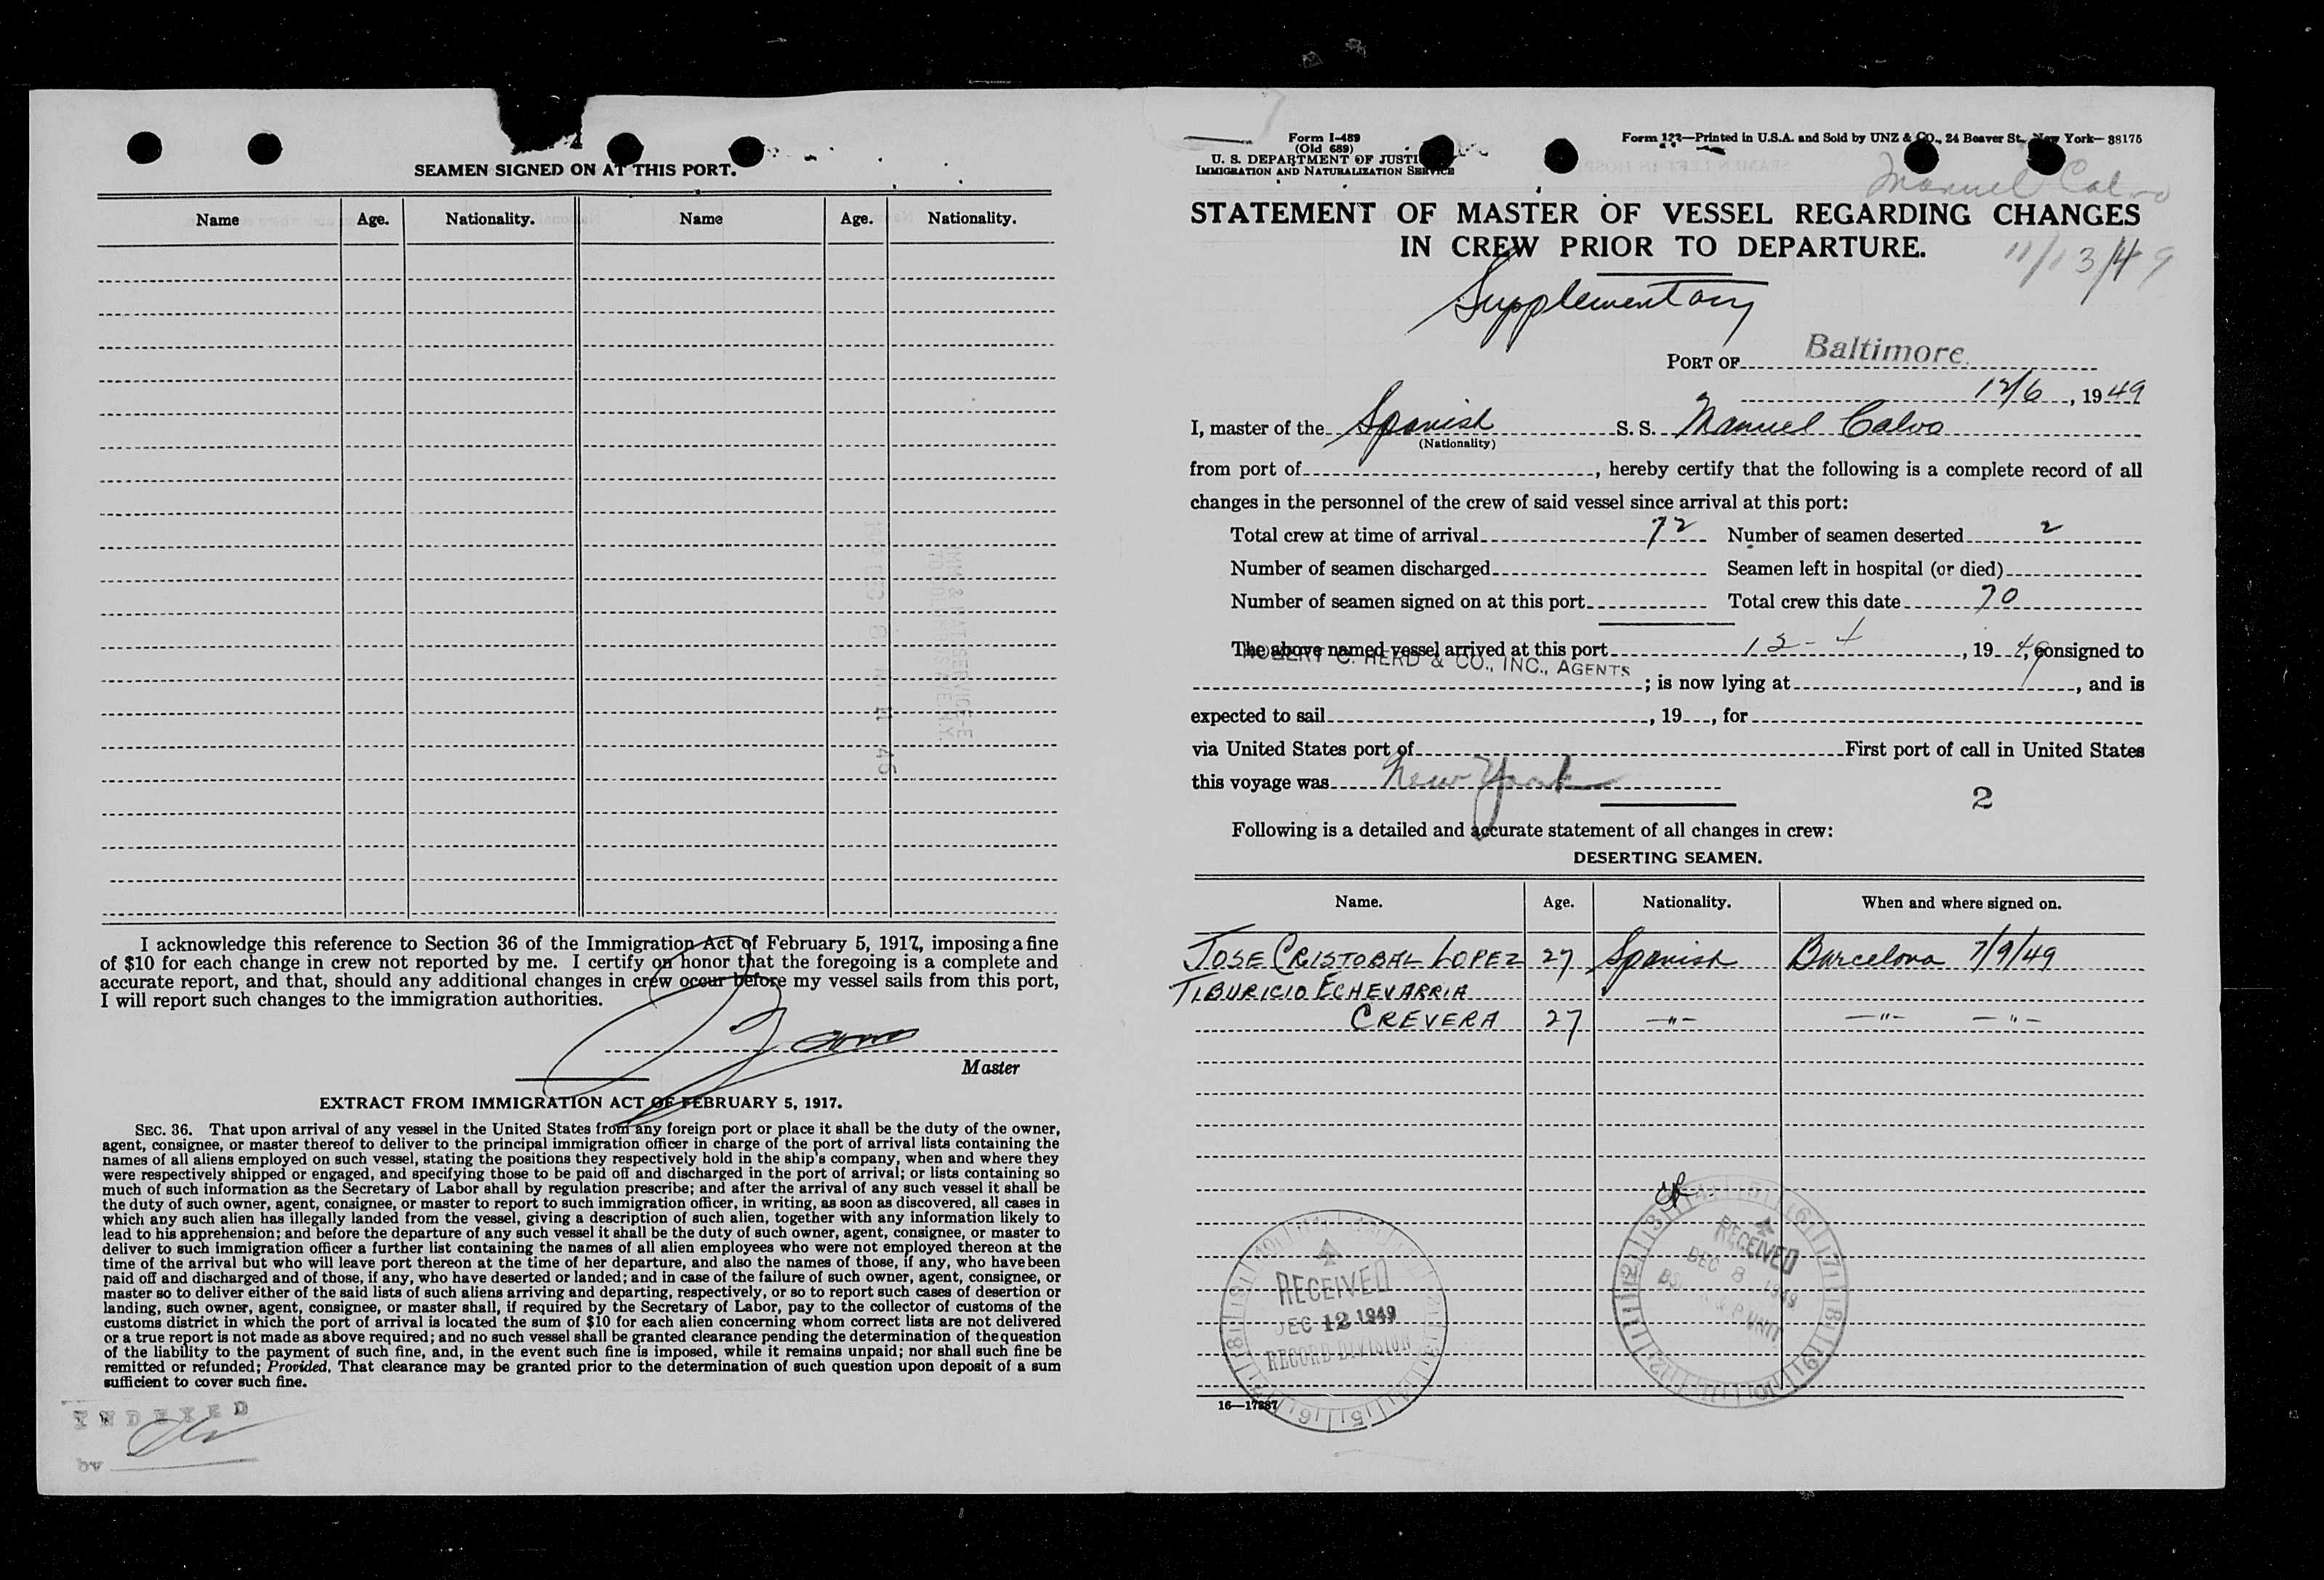 SEAMEN SIGNED ON AT THIS PORT.
Name Age. Nationality. Name Age. Nationality.
I acknowledge this reference to Section 36 of the Immigration Act of February 5, 1917, imposing a fine
of $10 for each change in crew not reported by me. I certify on honor that the foregoing is a complete and
accurate report, and that, should any additional changes in crew occur before my vessel sails from this port,
I will report such changes to the immigration authorities.
Master
EXTRACT FROM IMMIGRATION ACT OF FEBRUARY 5, 1917.
SEC. 36. That upon arrival of any vessel in the United States from any foreign port or place it shall be the duty of the owner,
agent, consignee, or master thereof to deliver to the principal immigration officer in charge of the port of arrival lists containing the
names of all aliens employed on such vessel, stating the positions they respectively hold in the ship's company, when and where they
were respectively shipped or engaged, and specifying those to be paid off and discharged in the port of arrival; or lists containing so
much of such information as the Secretary of Labor shall by regulation prescribe; and after the arrival of any such vessel it shall be
the duty of such owner, agent, consignee, or master to report to such immigration officer, in writing, as soon as discovered, all cases in
which any such alien has illegally landed from the vessel, giving a description of such alien, together with any information likely to
lead to his apprehension; and before the departure of any such vessel it shall be the duty of such owner, agent, consignee, or master to
deliver to such immigration officer a further list containing the names of all alien employees who were not employed thereon at the
time of the arrival but who will leave port thereon at the time of her departure, and also the names of those, if any, who have been
paid off and discharged and of those, if any, who have deserted or landed; and in case of the failure of such owner, agent, consignee, or
master so to deliver either of the said lists of such aliens arriving and departing, respectively, or so to report such cases of desertion or
landing, such owner, agent, consignee, or master shall, if required by the Secretary of Labor, pay to the collector of customs of the
customs district in which the port of arrival is located the sum of $10 for each alien concerning whom correct lists are not delivered
or a true report is not made as above required; and no such vessel shall be granted clearance pending the determination of the question
of the liability to the payment of such fine, and, in the event such fine is imposed, while it remains unpaid; nor shall such fine be
remitted or refunded; Provided, That clearance may be granted prior to the determination of such question upon deposit of a sum
sufficient to cover such fine.
INDEXED
by
Form I-489
(Old 689)
U. S. DEPARTMENT OF JUSTI
IMMIGRATION AND NATURALIZATION SERVICE
Form 122—Printed in U.S.A. and Sold by UNZ & CO., 24 Beaver St., New York—38175
Manuel Calvo
11/13/49
STATEMENT OF MASTER OF VESSEL REGARDING CHANGES
IN CREW PRIOR TO DEPARTURE.
Supplementary
PORT OF Baltimore.
12/6, 1949
I, master of the Spanish S. S. Manuel Calvo
(Nationality)
from port of , hereby certify that the following is a complete record of all
changes in the personnel of the crew of said vessel since arrival at this port:
Total crew at time of arrival 72 Number of seamen deserted 2
Number of seamen discharged Seamen left in hospital (or died)
Number of seamen signed on at this port Total crew this date 70
The above named vessel arrived at this port 12-4, 1949, consigned to
ROBERT C. HERD & CO., INC., AGENTS
; is now lying at , and is
expected to sail , 19 , for
via United States port of First port of call in United States
this voyage was New York
2
Following is a detailed and accurate statement of all changes in crew:
DESERTING SEAMEN.
Name. Age. Nationality. When and where signed on.
JOSE CRISTOBAL LOPEZ 27 Spanish Barcelona 7/9/49
TIBURICIO ECHEVARRIA
CREVERA 27 —"— —"— —"—
RECEIVED
DEC 12 1949
RECORD DIVISION
RECEIVED
DEC 8 1949
16—17887